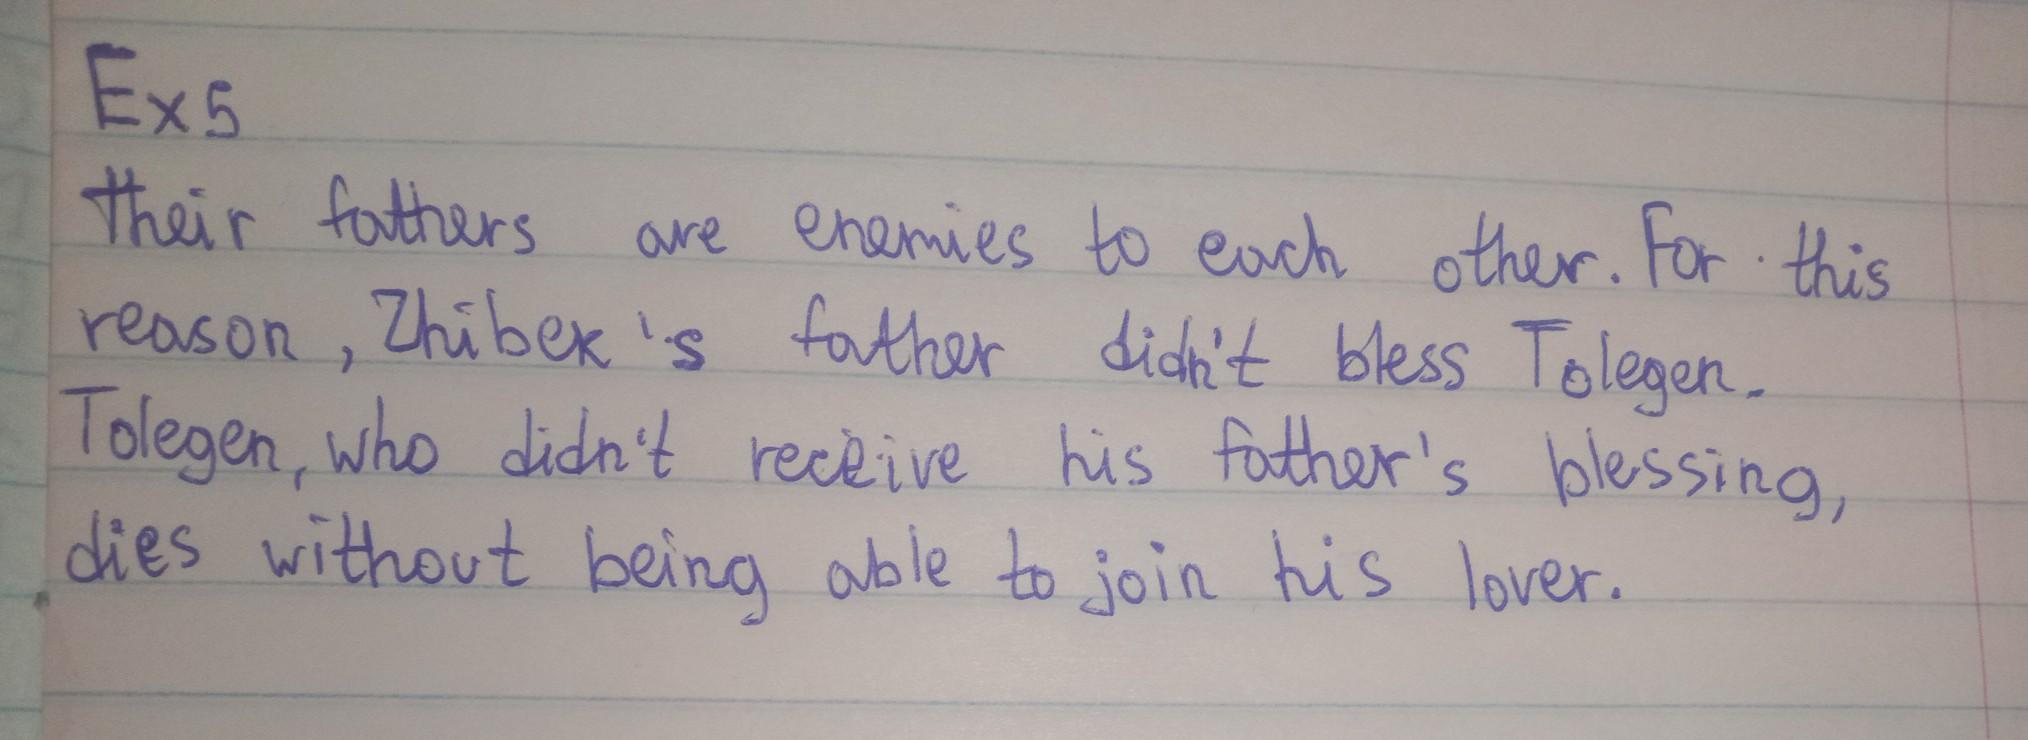 Ex5
Their fathers are enemies to each other. For this
reason, Zhibek's father didn't bless Tolegen.
Tolegen, who didn't receive his father's blessing,
dies without being able to join his lover.